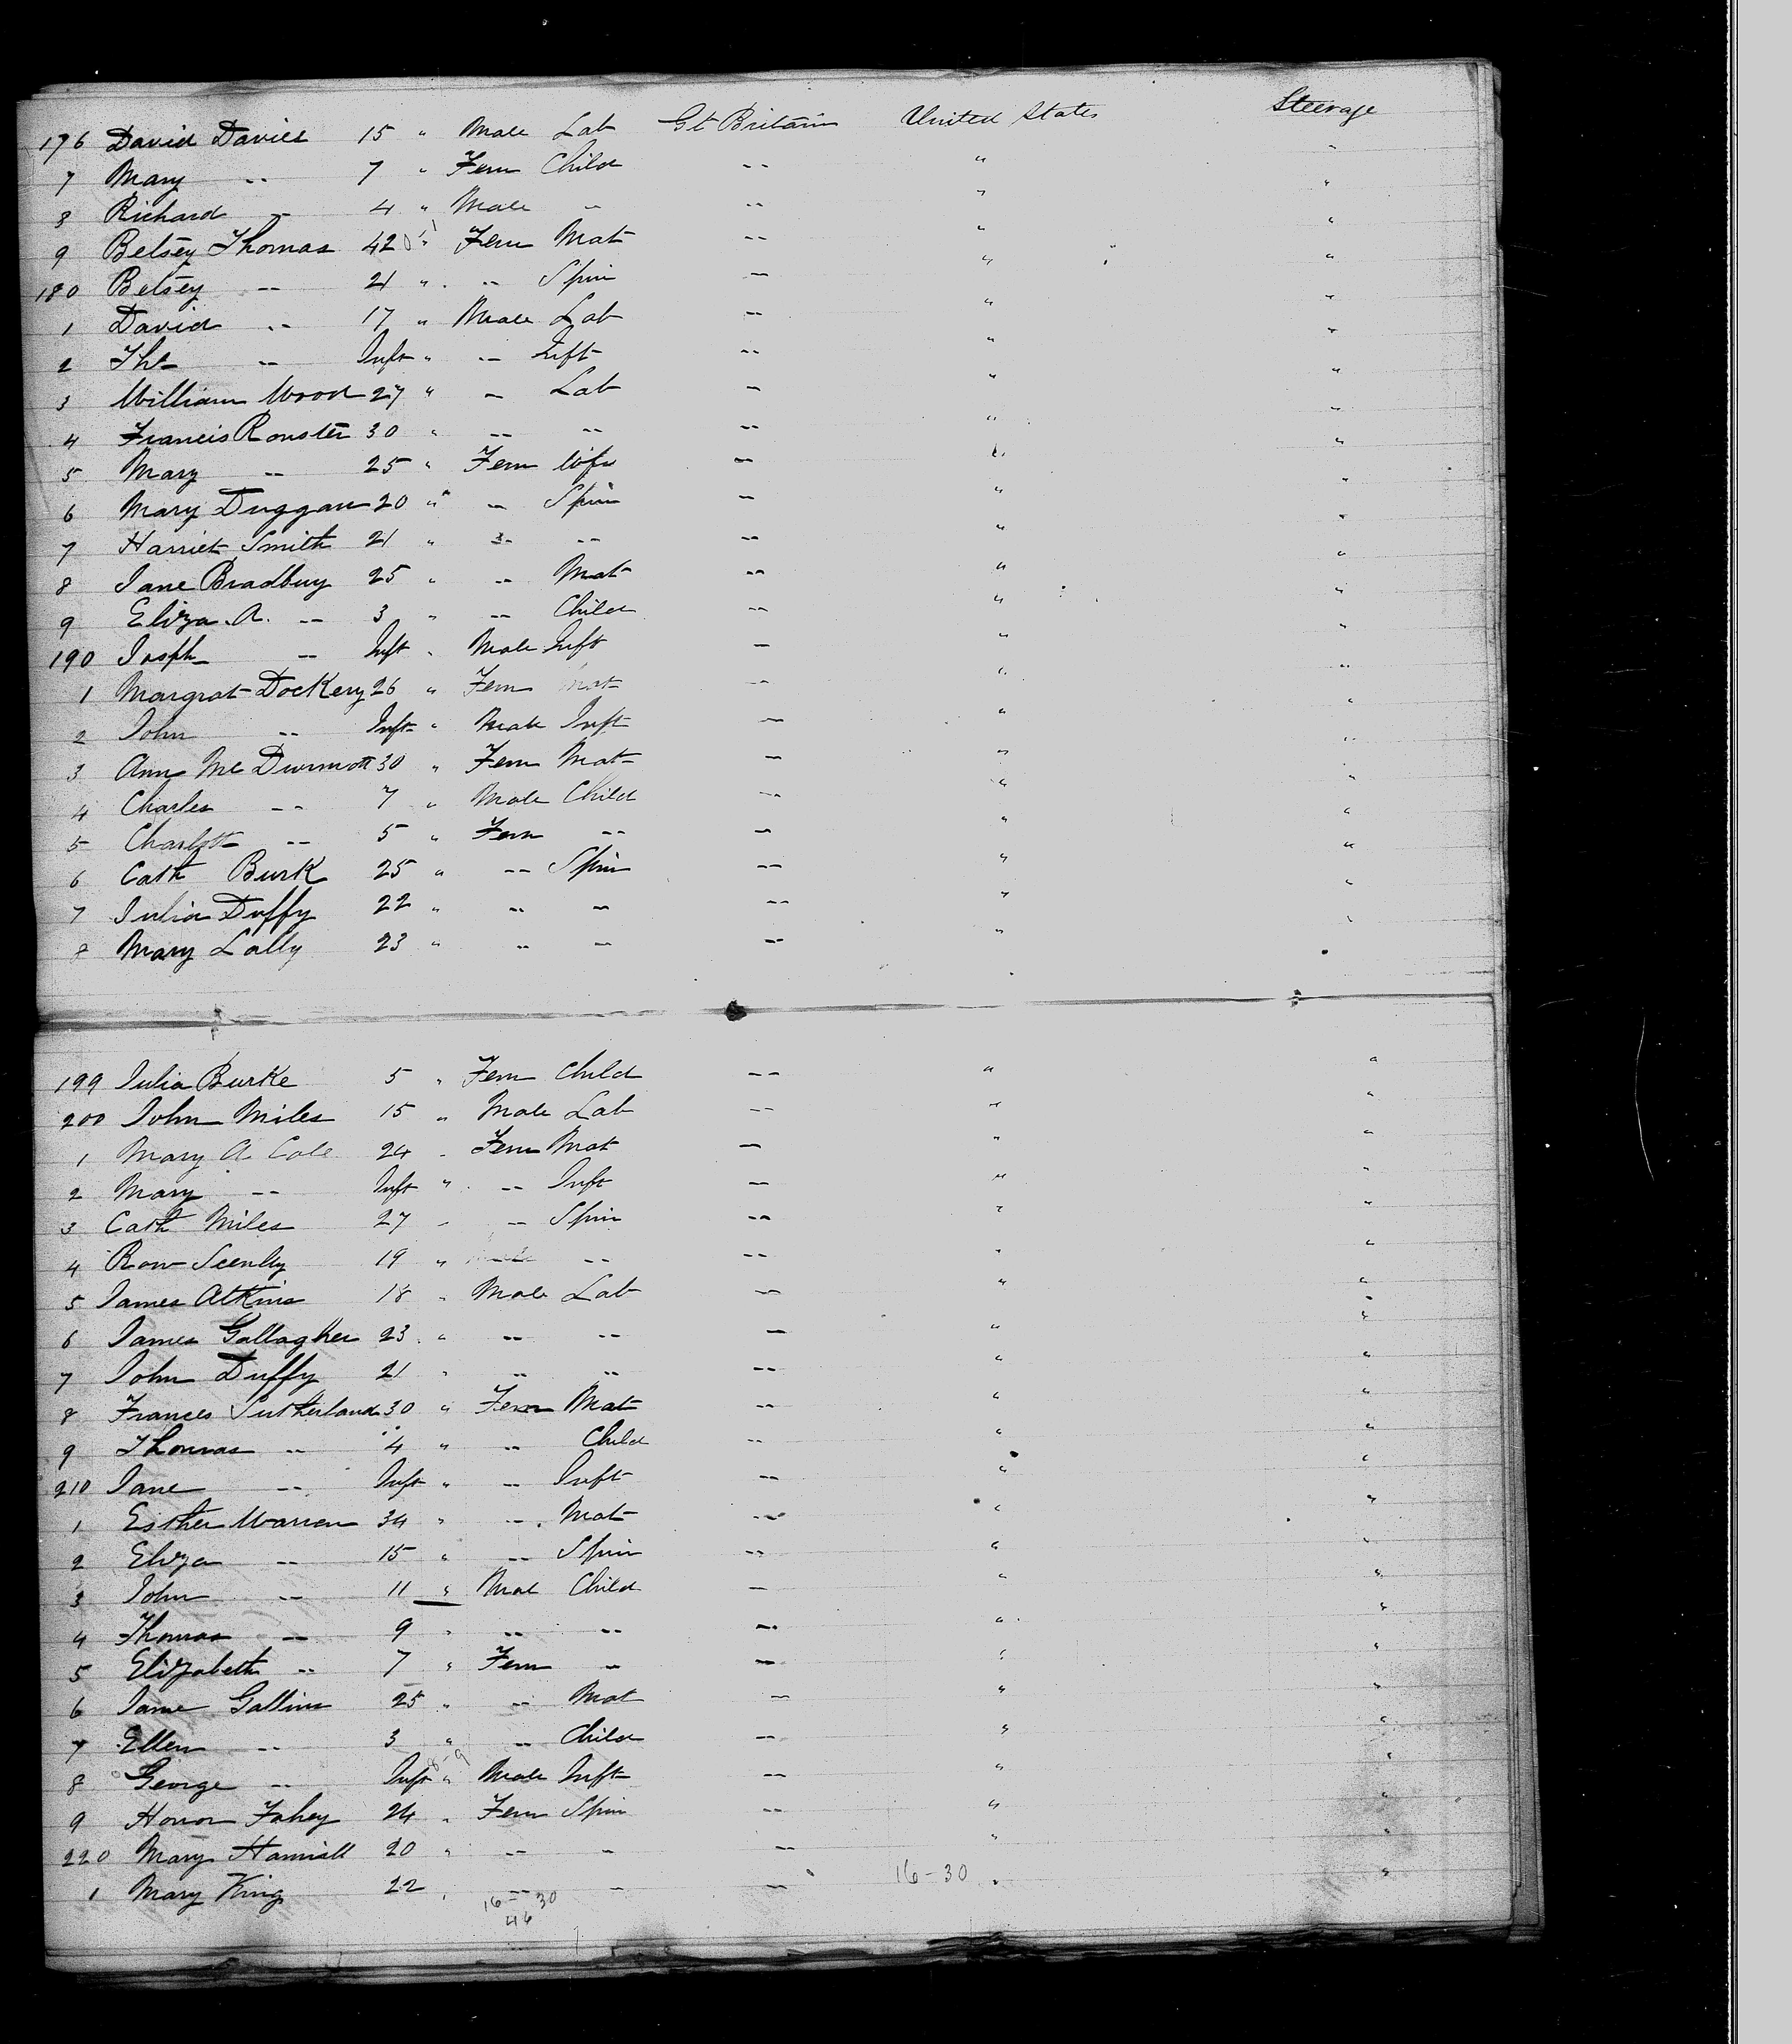 176 David Davies 15 " Male Lab Gt Britain United States Steerage
7 Mary -- 7 " Fem Child -- " "
8 Richard -- 4 " Male -- -- " "
9 Betsey Thomas 42 " Fem Mat -- " "
180 Betsey -- 21 " -- Spin -- " "
1 David -- 17 " Male Lab -- " "
2 Ths -- Inft " -- Inft -- " "
3 William Wood 27 " -- Lab -- " "
4 Francis Rouster 30 " -- -- -- " "
5 Mary -- 25 " Fem Wife -- " "
6 Mary Duggan 20 " -- Spin -- " "
7 Harriet Smith 21 " -- -- -- " "
8 Jane Bradbuy 25 " -- Mat -- " "
9 Eliza. A. -- 3 " -- Child -- " "
190 Josph -- Inft " Male Inft -- " "
1 Margrat Dockery 26 " Fem Mat -- " "
2 John -- Inft " Male Inft -- " "
3 Ann Mc Durmott 30 " Fem Mat -- " "
4 Charles -- 7 " Male Child -- " "
5 Charlott -- 5 " Fem -- -- " "
6 Cath Burk 25 " -- Spin -- " "
7 Julia Duffy 22 " -- -- -- " "
8 Mary Lally 23 " -- -- -- " "
199 Julia Burke 5 " Fem Child -- " "
200 John Miles 15 " Male Lab -- " "
1 Mary A. Cole 24 " Fem Mat -- " "
2 Mary -- Inft " -- Inft -- " "
3 Cath Miles 27 " -- Spin -- " "
4 19 " -- -- " "
5 James Atkins 18 " Male Lab -- " "
6 James Gallagher 23 " -- -- -- " "
7 John Duffy 21 " -- -- -- " "
8 Frances Sutherland 30 " Fem Mat -- " "
9 Thomas -- 4 " -- Child -- " "
210 Jane -- Inft " -- Inft -- " "
1 Esther Warren 34 " -- Mat -- " "
2 Eliza -- 15 " -- Spin -- " "
3 John -- 11 " Mal Child -- " "
4 Thomas -- 9 " -- -- -- " "
5 Elizabeth -- 7 " Fem -- -- " "
6 Jane Gallins 25 " -- Mat -- " "
7 Ellen -- 3 " -- Child -- " "
8 George -- Inft " Male Inft -- " "
9 Honor Fahey 24 " Fem Spin -- " "
220 Mary 20 " -- -- -- " "
1 Mary King 22 " -- -- -- 16-30 " "
16-30
46